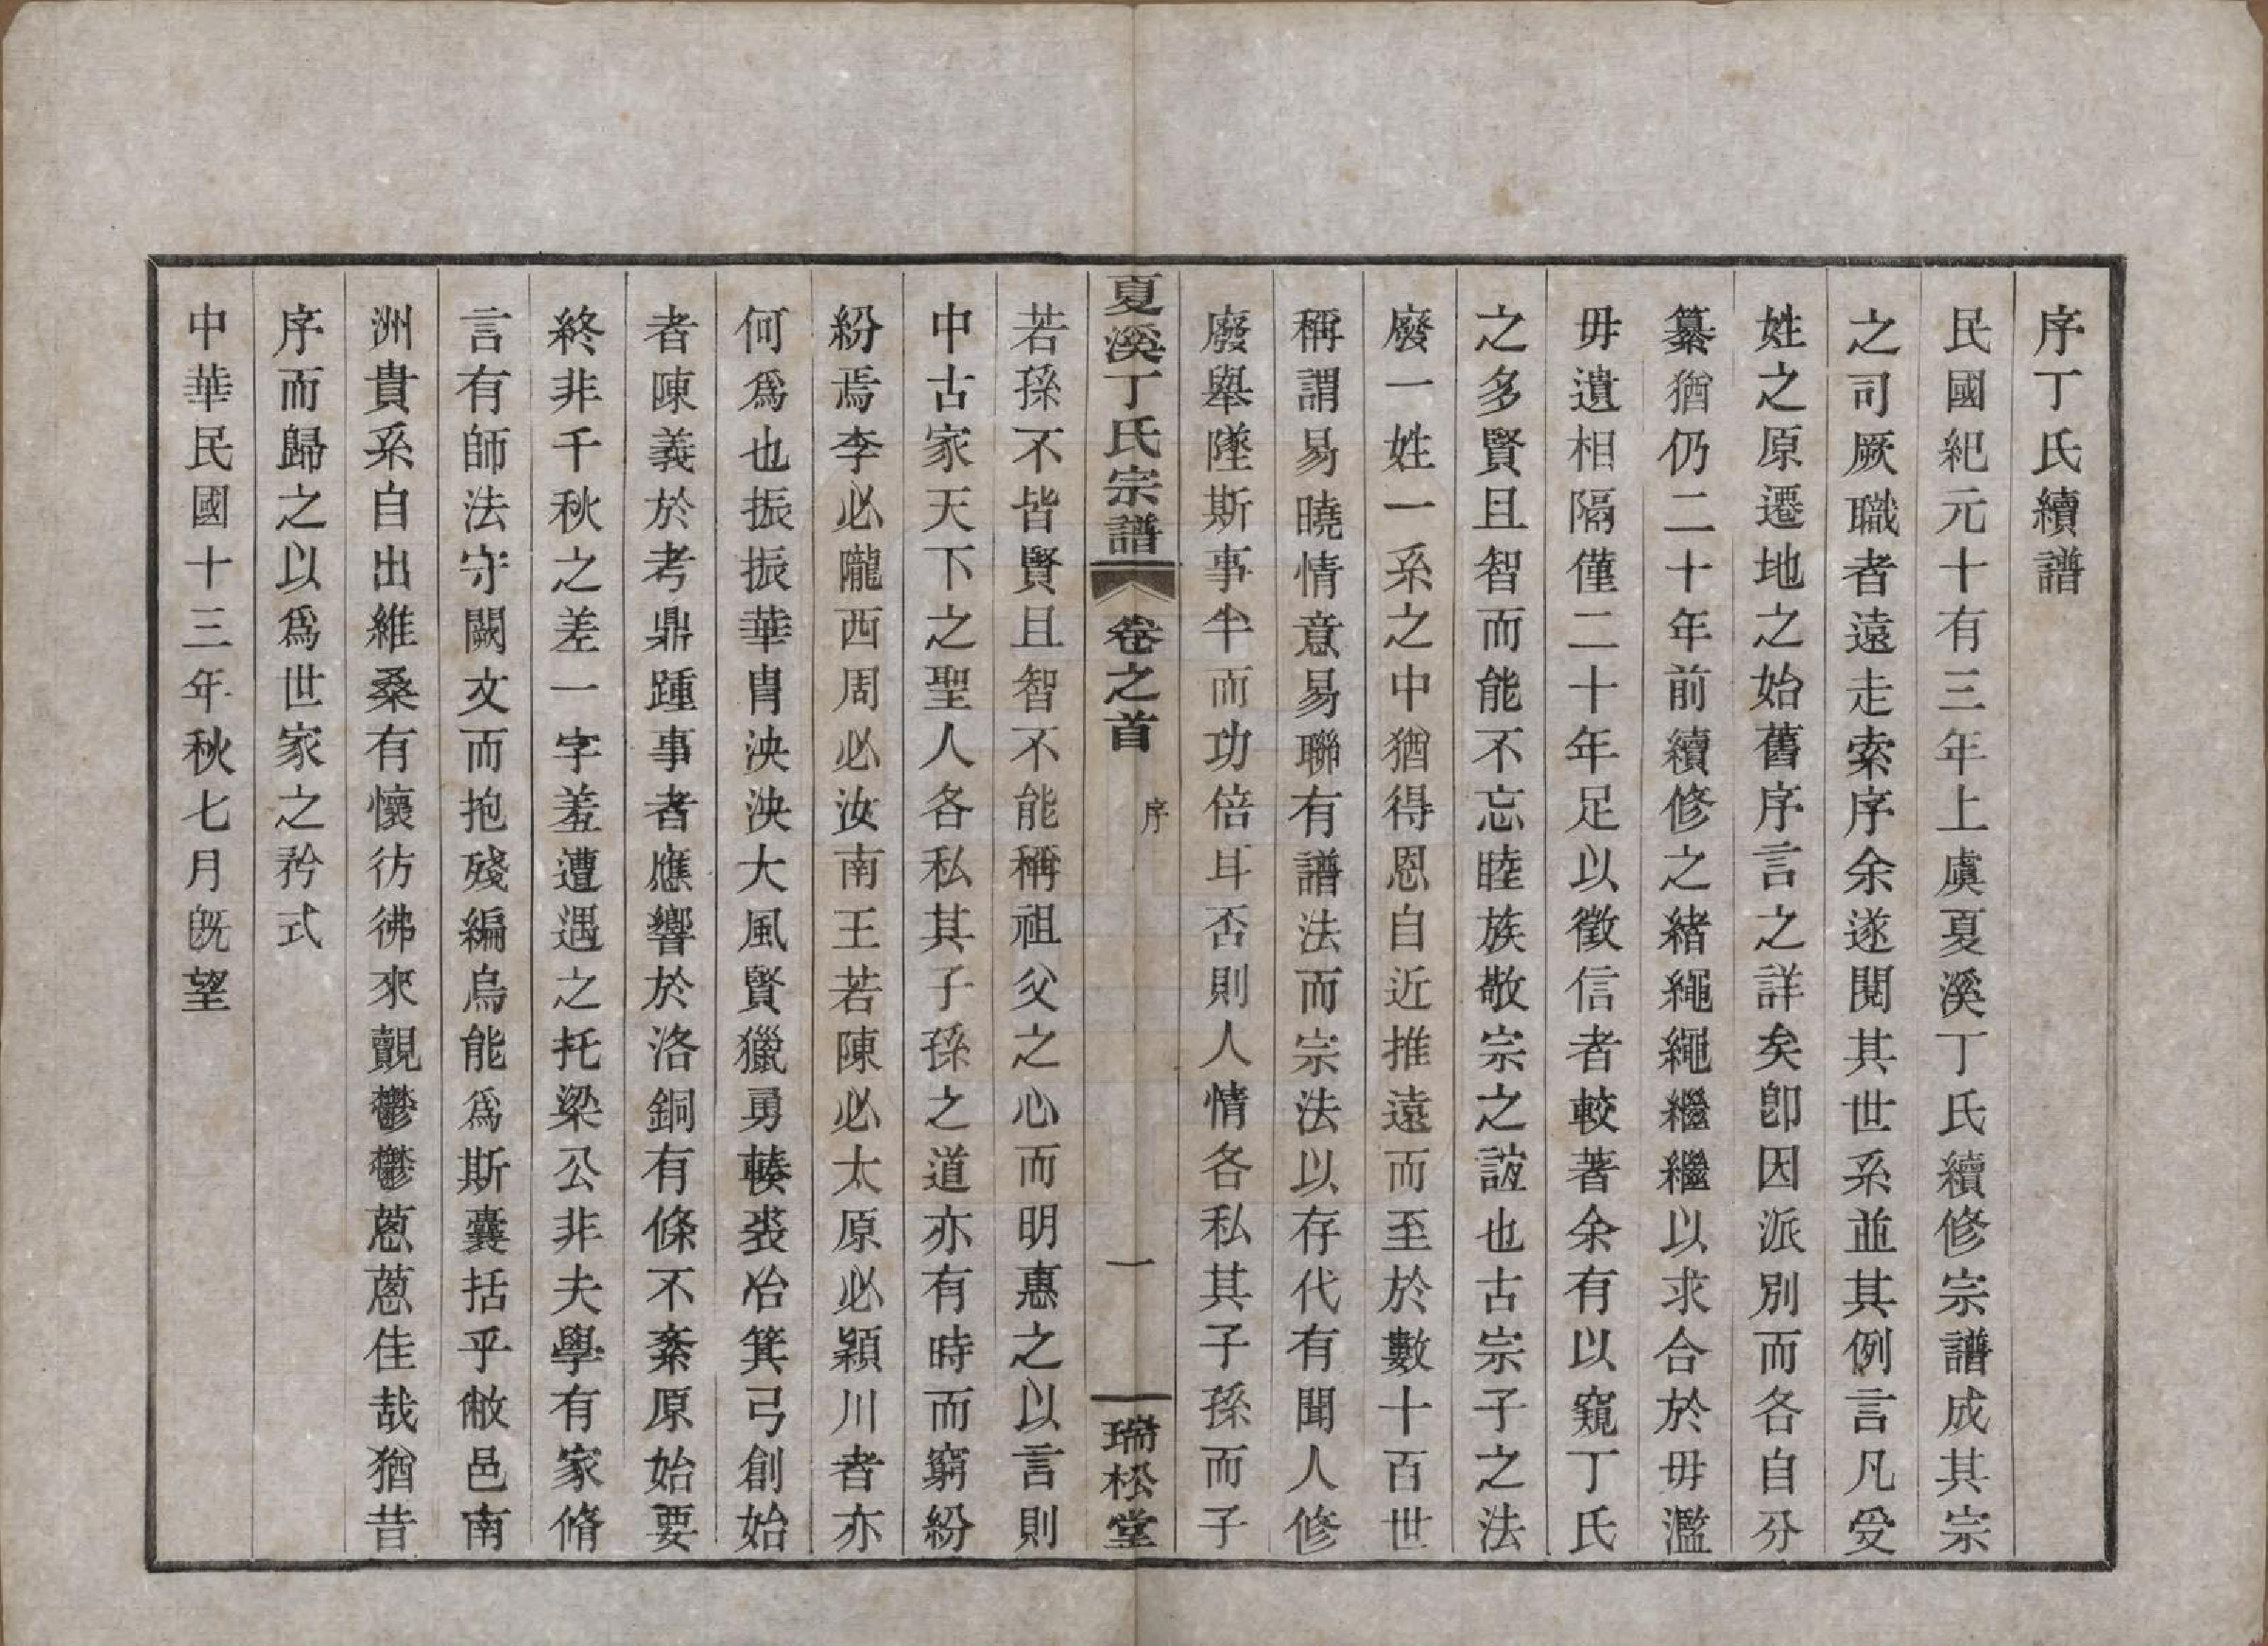 序丁氏續譜
民國紀元十有三年上虞夏溪丁氏續修宗譜成其宗
之司厥職者遠走索序余遂閱其世系並其例言凡受
姓之原遷地之始舊序言之詳矣卽因派別而各自分
纂猶仍二十年前續修之緒繩繩繼繼以求合於毋濫
毋遺相隔僅二十年足以徵信者較著余有以窺丁氏
之多賢且智而能不忘睦族敬宗之誼也古宗子之法
廢一姓一系之中猶得恩自近推遠而至於數十百世
稱謂易曉情意易聯有譜法而宗法以存代有聞人修
廢舉墜斯事半而功倍耳否則人情各私其子孫而子
夏溪丁氏宗譜 卷之首 序 一 瑞松堂
若孫不皆賢且智不能稱祖父之心而明惠之以言則
中古家天下之聖人各私其子孫之道亦有時而窮紛
紛焉李必隴西周必汝南王若陳必太原必潁川者亦
何爲也振振華冑泱泱大風賢獵勇轃裘冶箕弓創始
者陳義於考鼎踵事者應響於洛銅有條不紊原始要
終非千秋之差一字羞遭遇之托梁公非夫學有家脩
言有師法守闕文而抱殘編烏能爲斯囊括乎敝邑南
洲貴系自出維桑有懷彷彿來覿鬱鬱蔥蔥佳哉猶昔
序而歸之以爲世家之矜式
中華民國十三年秋七月既望